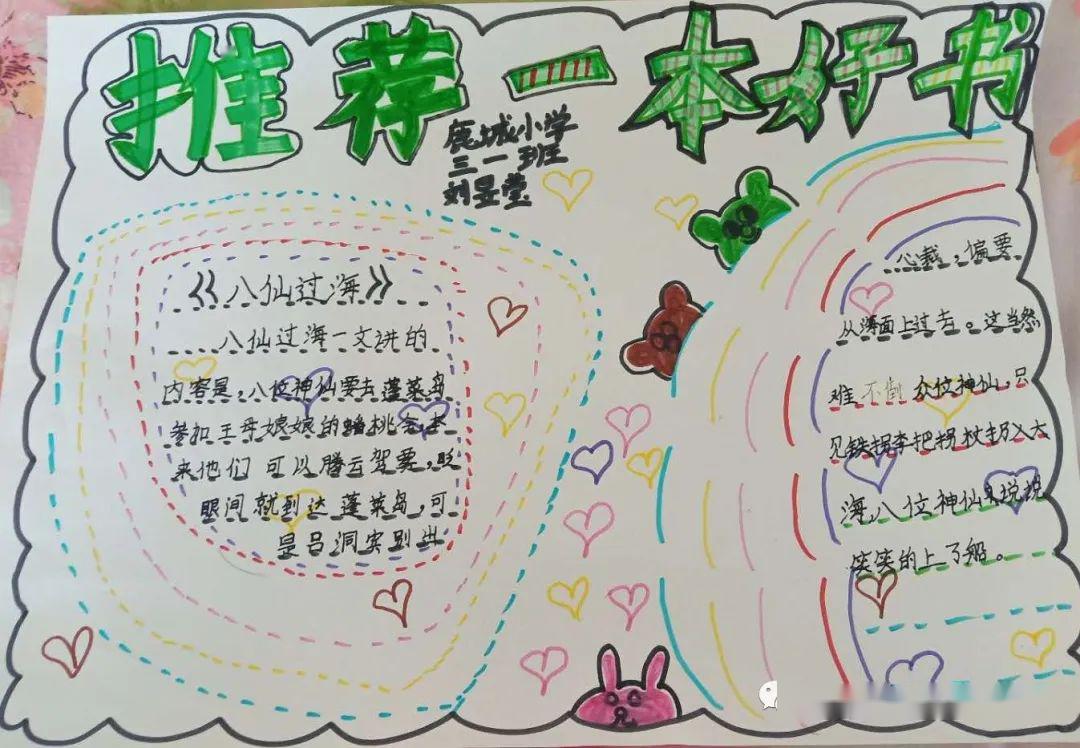 推荐一本好书
鹿城小学
三一班
刘昱莹
《八仙过海》
八仙过海一文讲的
内容是,八位神仙要去蓬莱岛
参加王母娘娘的蟠桃会,本
来他们可以腾云驾雾,眨
眼间就到达蓬莱岛,可
是吕洞宾别出
心裁,偏要
从海面上过去。这当然
难不倒众位神仙,只
见铁拐李把拐杖扔入大
海,八位神仙说说
笑笑的上了船。